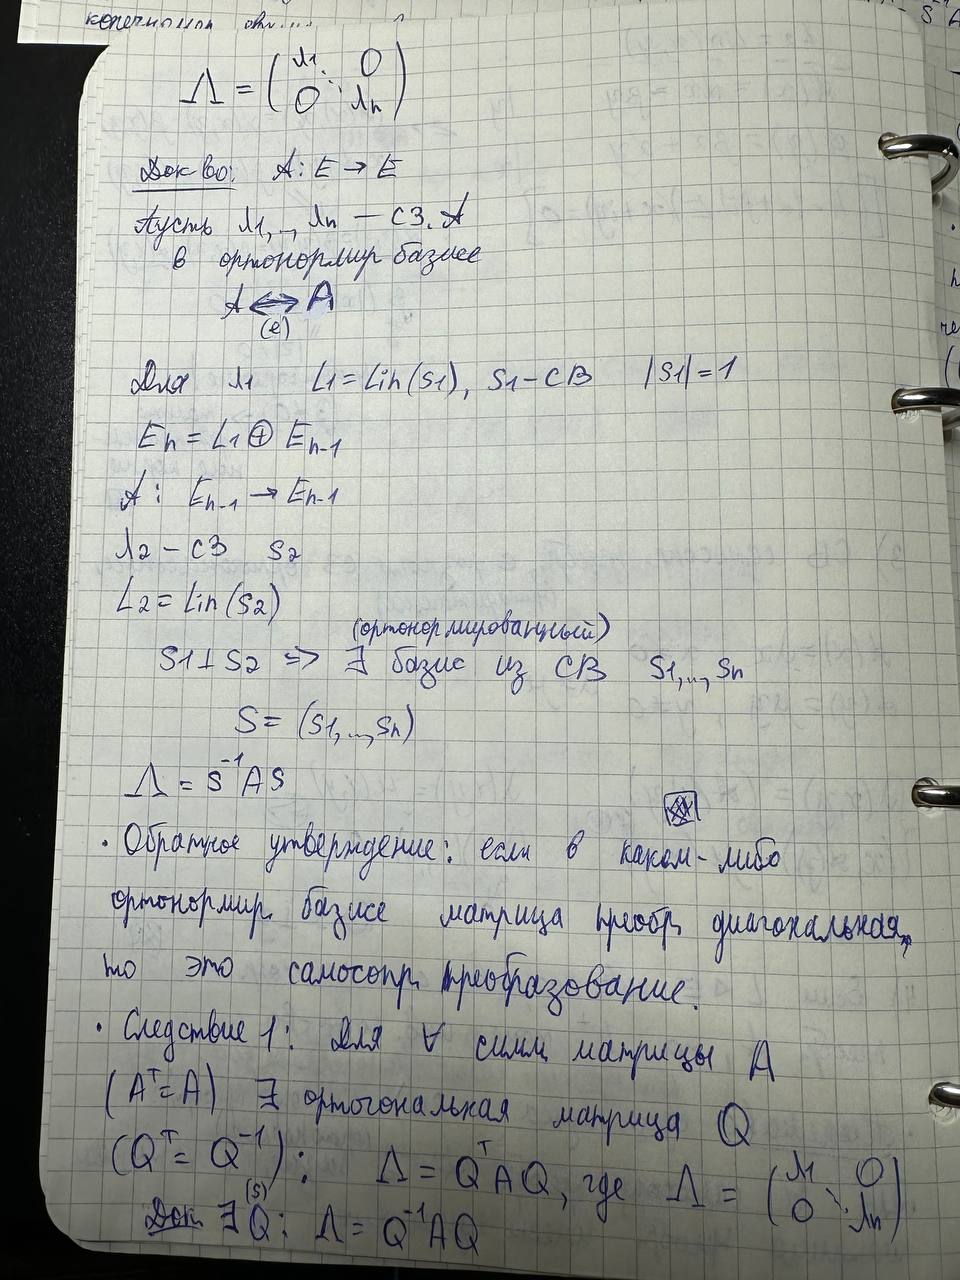 Λ = (λ1 0
0 λn)
Док-во: A: E → E
Пусть λ1,..,λn — СЗ. A
в ортонормир базисе
A ⟷ A
(e)
Для λ1 L1 = Lin(S1), S1 - СВ |S1| = 1
En = L1 ⊕ En-1
A: En-1 → En-1
λ2 - СЗ S2
L2 = Lin(S2)
(ортонормированный)
S1 ⊥ S2 => ∃ базис из СВ S1,..,Sn
S = (S1,..,Sn)
Λ = S⁻¹AS
· Обратное утверждение: если в каком-либо
ортонормир. базисе матрица преобр. диагональная,
то это самосопр. преобразование.
· Следствие 1: Для ∀ симм матрицы A
(Aᵀ = A) ∃ ортогональная матрица Q
(Qᵀ = Q⁻¹): Λ = QᵀAQ, где Λ = (λ1 0
0 λn)
(S)
Док ∃ Q: Λ = Q⁻¹AQ